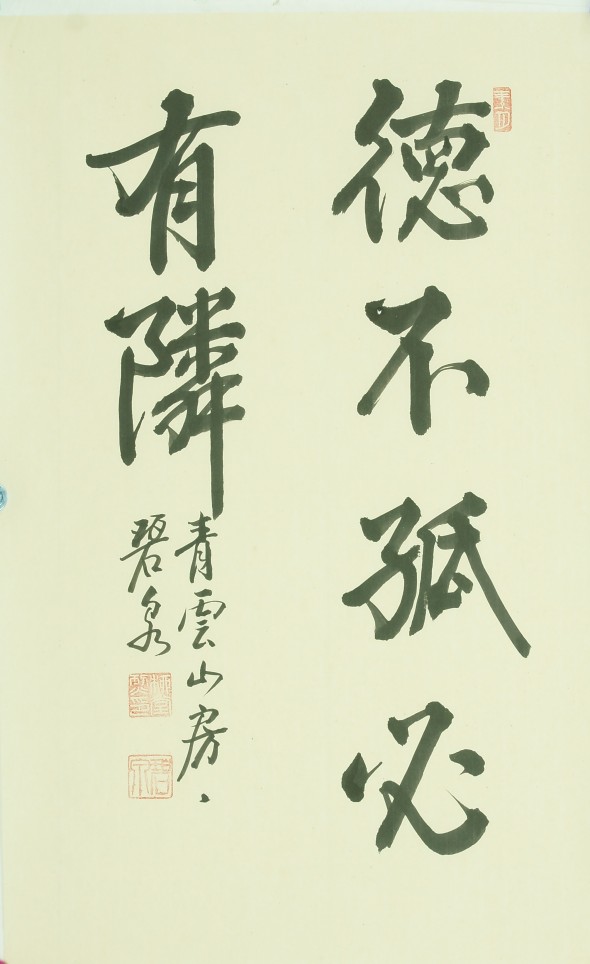 德不孤必
有隣
青雲山房、
碧泉